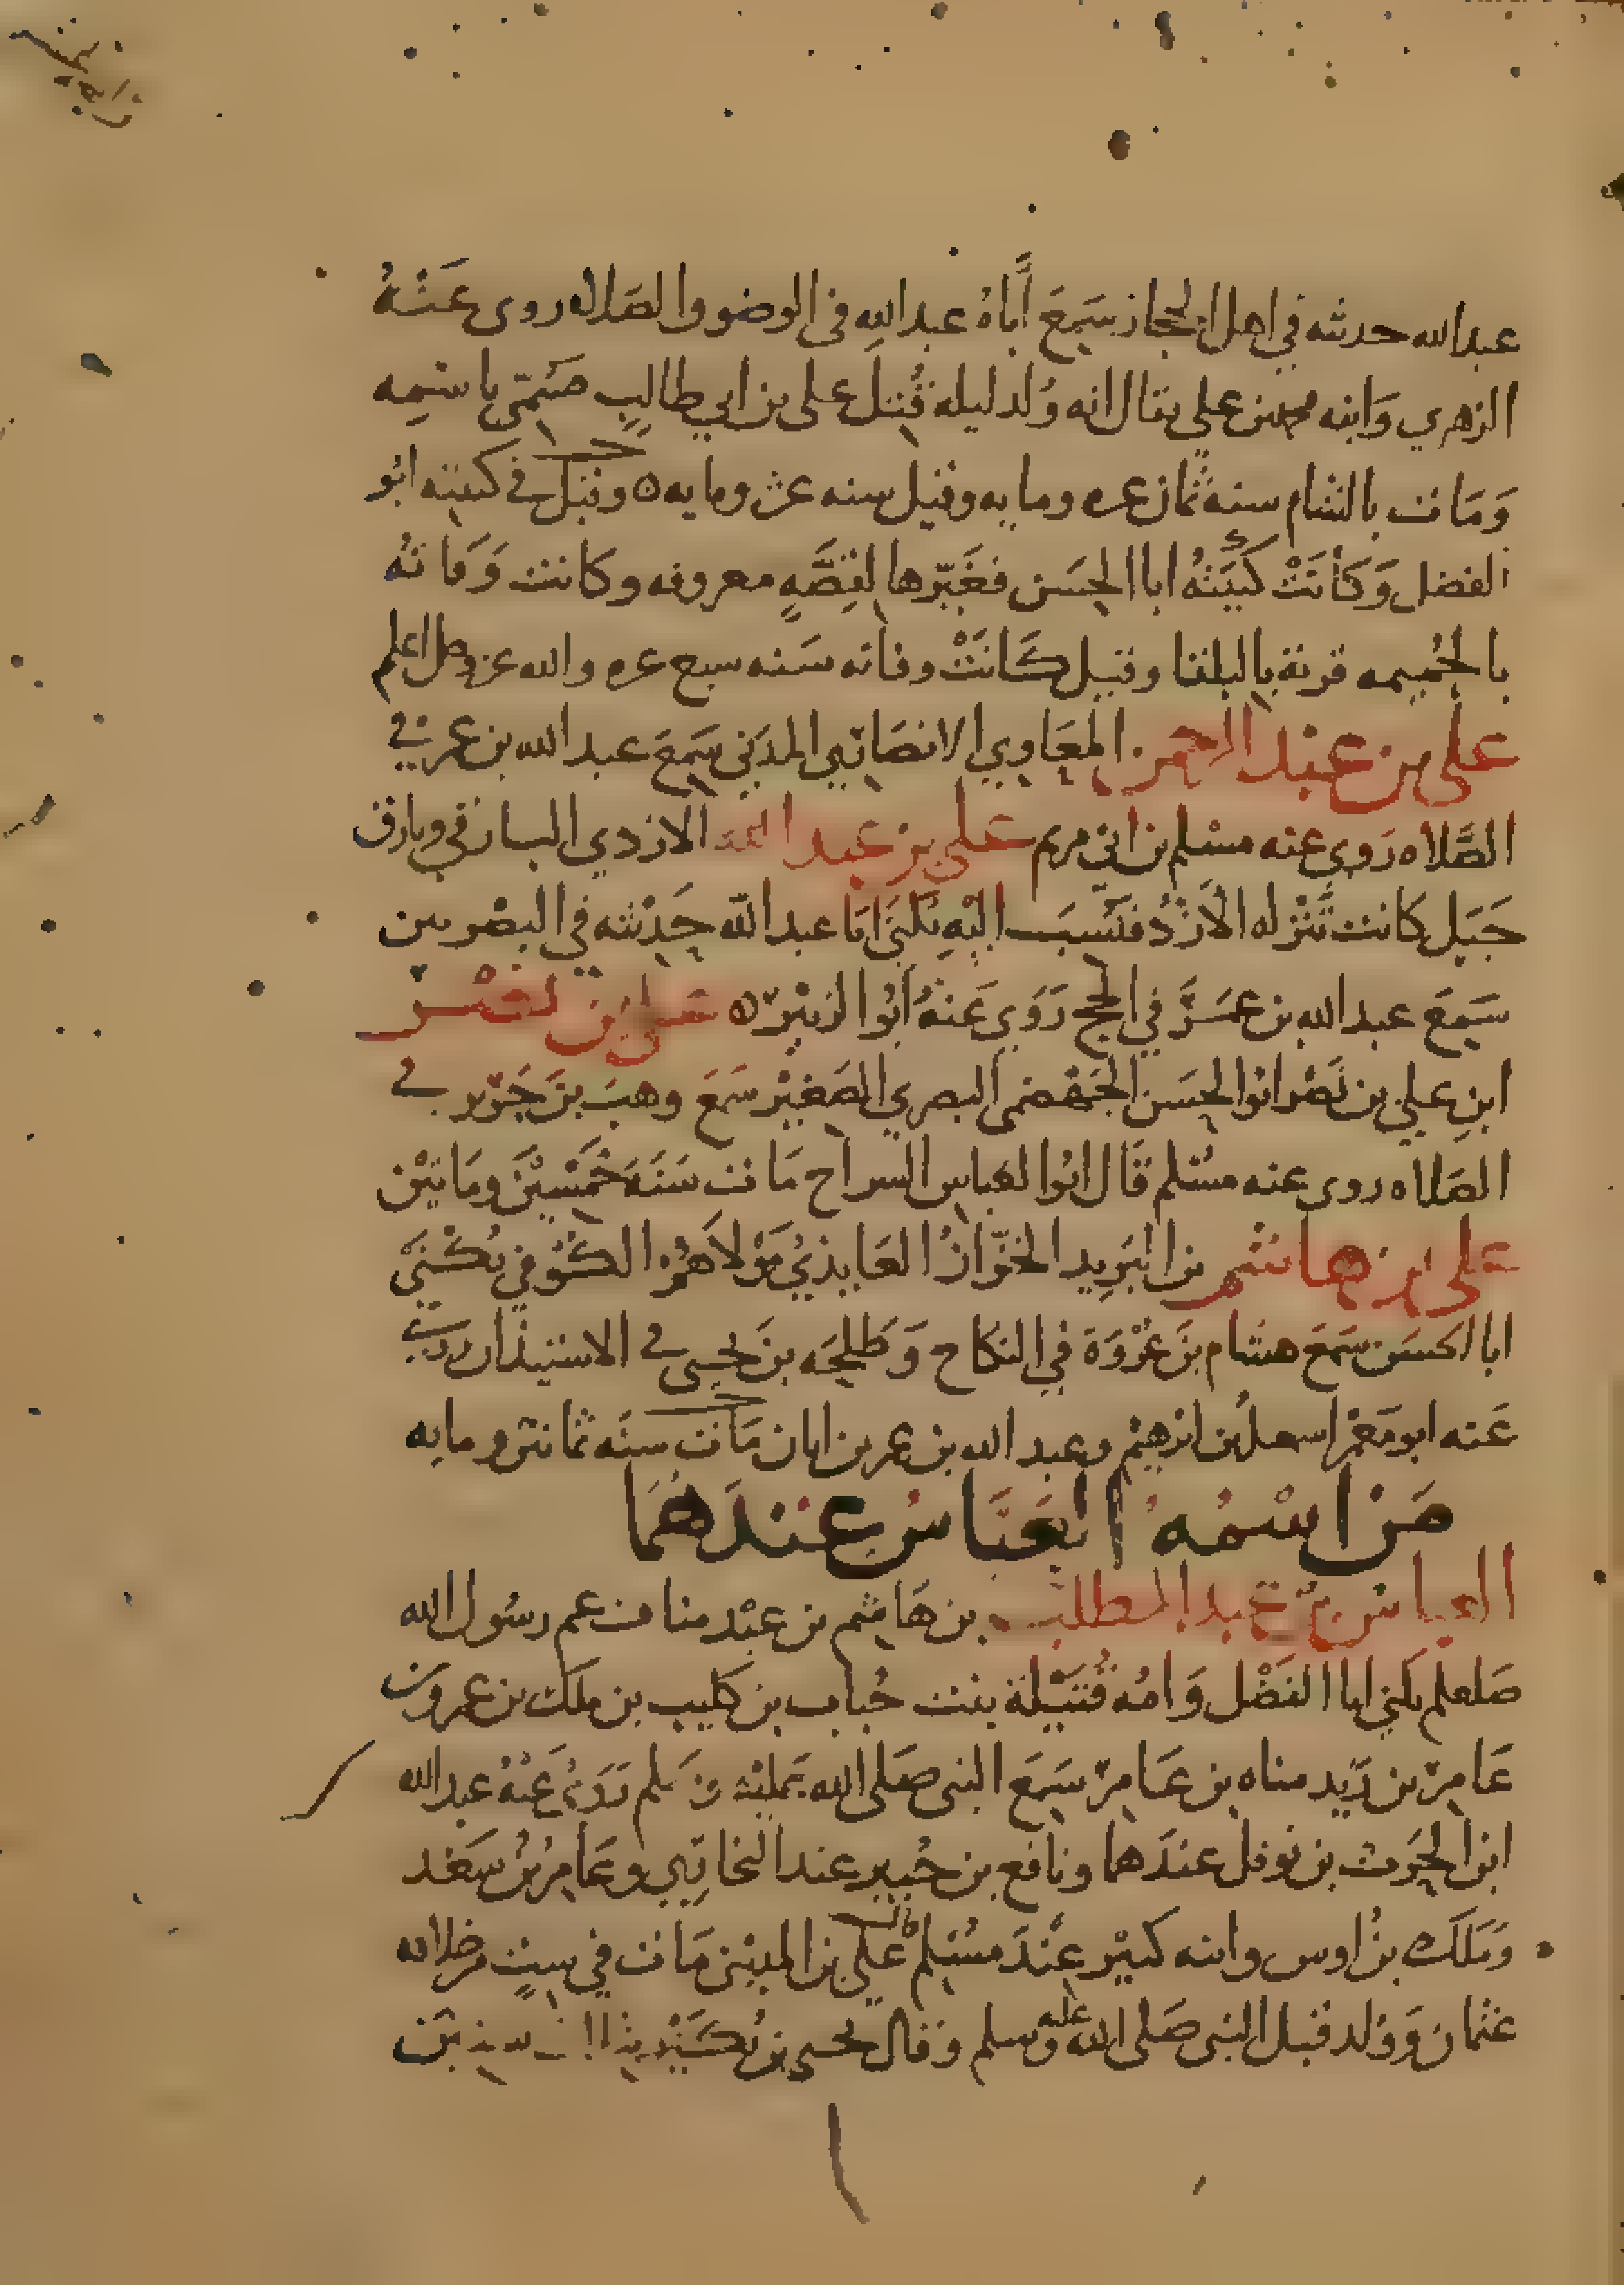 عبدالله حدثه في اهل الحجاز سَمِعَ أَباهُ عبداللهِ في الوضو والصلاه روى عَنْهُ
الزهري وَابنه محمد بن علي يقال انه وُلد ليله قُتِلَ علي بن ابي طالبٍ فسُمّي باسمِه
وَمَات بالشام سنه ثمان عره ومايه وقيل سنه عشر ومايه ٥ وقيل في كنيته ابُو
الفضل وَكَانَتْ كنيَتُهُ ابا الحسَن فغَيّرها لقِصَّهٍ معروفه وكانت وَفَاتهُ
بالحُميمه قرية بالبلقا وقيل كَانَتْ وفاته سَنه سبع عره والله عز وجل اعلم
علي بن عبد الرحمن المعَاوِي الانصَارِي المدَني سَمِعَ عبد الله بن عمر في
الصَّلاه رَوى عنه مسْلم بن ابي مريم علي بن عبد الله الازدي البارقي وبارق
جَبَل كانت تَنْزله الأَزْدُ فنُسِبَ اليْهِ يُكنَى ابَا عبد الله حَدِيْثه في البصْريين
سَمِعَ عبد الله بن عمَرَ في الحج رَوَى عَنْهُ أبُو الزبيْر ٥ علي بن نصْر
ابنِ علي بن نَصْر ابُو الحسَن الجَهْضَمي البصري الصَغيْر سَمعَ وهبَ بنَ جَرير في
الصَلاه روى عنه مسْلم قَال ابُو العباس السراج مَات سَنَةَ خمْسِيْنَ ومَايتيْن
علي بن هاشم بن البَرِيد الخزّازُ العَايذيُ مَوْلاَهُمْ الكُوفي يُكْنَى
ابا الحسَن سَمعَ هشام بنَ عُرْوَة في النكاح وَطَلحَه بنَ يحيى في الاستيذان روى
عَنه ابو مَعْمَر اسمعيلُ بن ابرهيمْ وعبد الله بن عمر بن ابان مَات سنَه ثمانين ومايه
مَن اسْمُهُ العَبَّاسُ عِندَهُمَا
العباس بن عبد المطلب بن هَاشم بن عبْد مناف عم رسُول الله
صَلعلم يكنى ابا الفَضْل وَامُه نُتَيْلة بنت خُباب بن كليب بن ملك بن عمرو بن
عَامِر بن زَيد مناه بن عَامِر سَمِعَ النبى صَلى الله عَليْه وَسَلم رَوَى عَنْهُ عبد الله
ابن الحرث بن نوفل عندَهما ونافع بن جُبير عند البخاري وعَامِرُ بنُ سَعْد
وَمَلَك بنُ اوس وابنه كبيْر عِنْدَ مسْلم قال علي بن المدِيْني مَات في سِتٍ من خلافه
عثمان وَوُلد قبل النبى صَلى الله عليه وسلم وَقال يحيى بن بُكَيْر بثلاث سنين